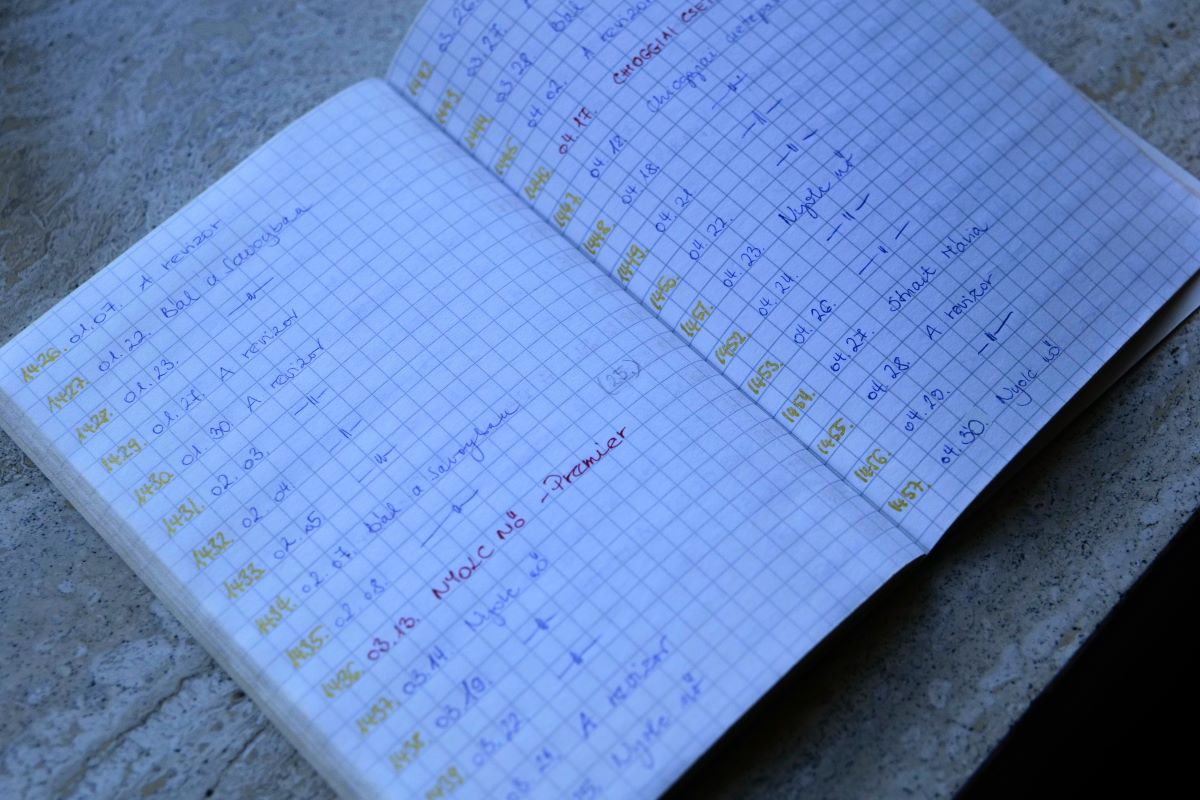 1426. 01.07. A revizor
1427. 01.22. Bál a Savoyban
1428. 01.23. —"—
1429. 01.27. A revizor
1430. 01.30. A revizor
1431. 02.03. —"—
1432. 02.04 —"—
1433. 02.05 —"—
1434. 02.07. Bál a Savoyban (25.)
1435. 02.08. —"—
1436. 03.13. NYOLC NŐ - Premier
1437. 03.14. Nyolc nő
1438. 03.19. —"—
1439. 03.22 —"—
03.21 A revizor
25. Nyolc nő
1442 03.26.
1443 03.27.
1444 03.28 Bál
1445 04.02. A revizor
1446 04.17. CHIOGGIAI CSET
1447 04.18. Chioggiai csetepa
1448 04.18. —"—
1449 04.21 —"—
1450. 04.22. —"—
1451. 04.23. Nyolc nő
1452. 04.24. —"—
1453. 04.26. —"—
1454 04.27. Stuart Mária
1455. 04.28. A revizor
1456. 04.29. —"—
1457. 04.30. Nyolc nő